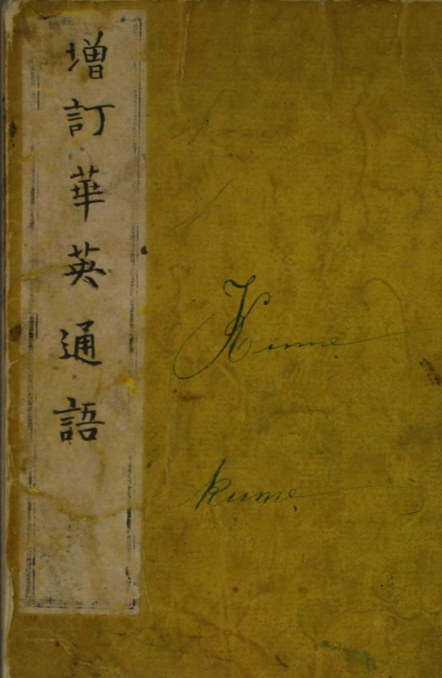 增訂華英通語
Kume
kume